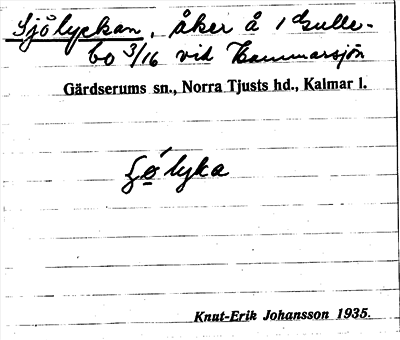 Sjölyckan, åker å 1 Gulle-
bo 3/16 vid Hammarsjön
Gärdserums sn., Norra Tjusts hd., Kalmar l.
ʃö́lyka
Knut-Erik Johansson 1935.